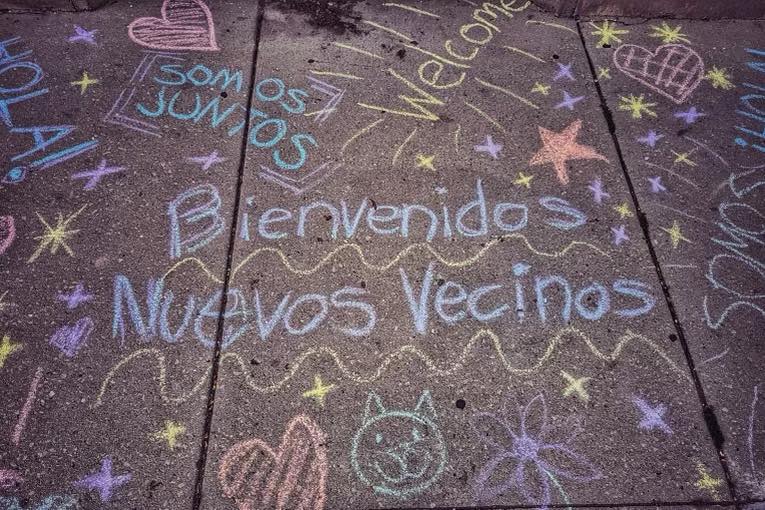 Welcome
SOMOS
JUNTOS
HOLA!
Bienvenidos
Nuevos Vecinos
SOMOS